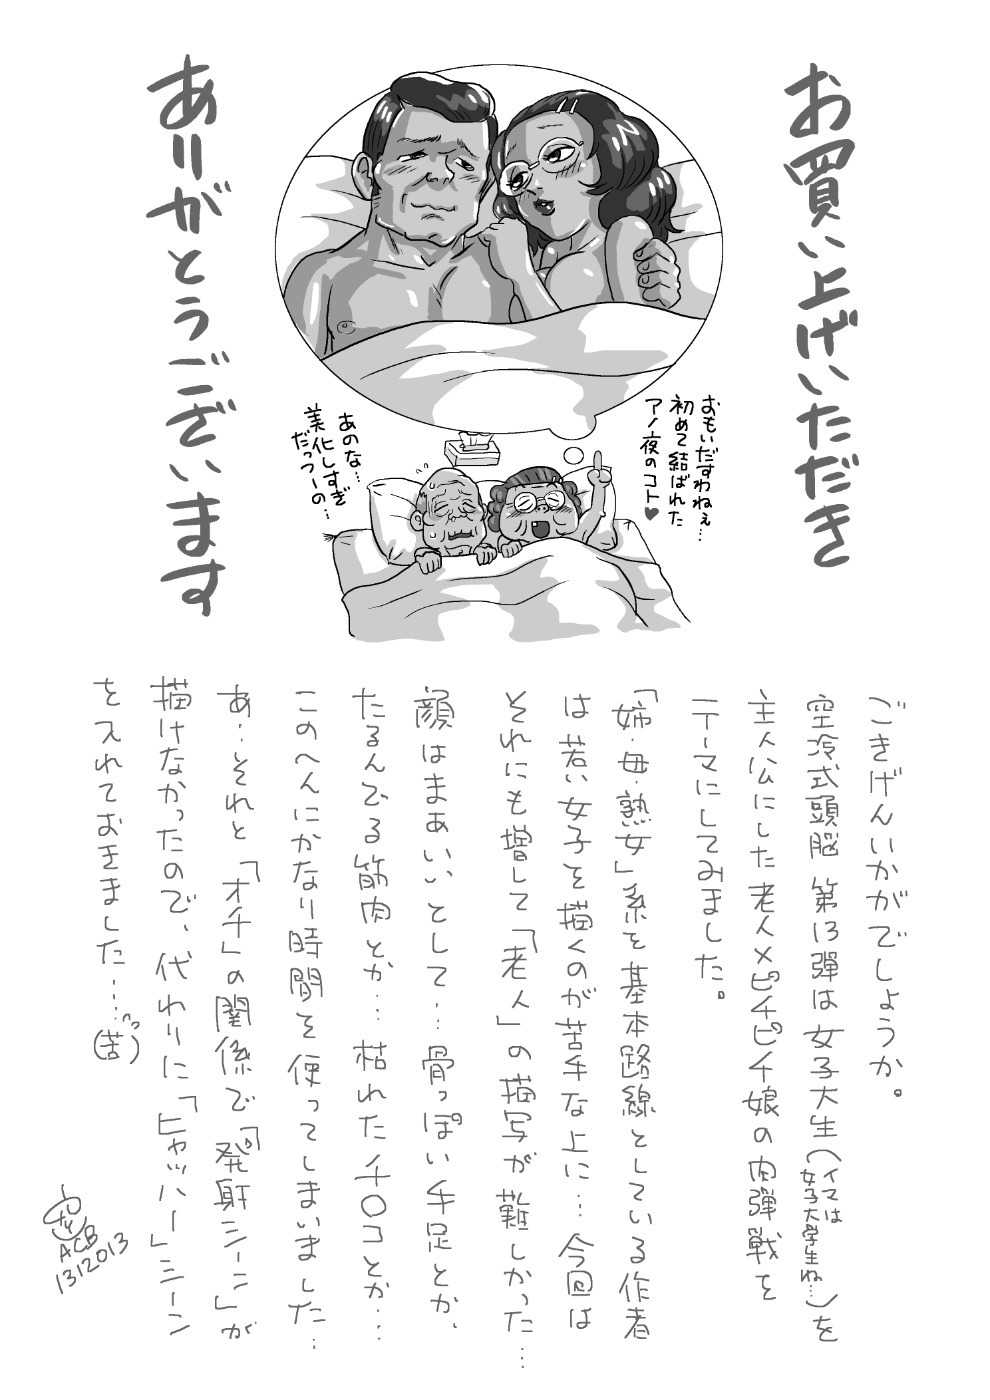 お買い上げいただき
ありがとうございます
おもいだすわねぇ…
初めて結ばれた
アノ夜のコト♥
あのな…
美化しすぎ
だっつーの…
ごきげんいかがでしょうか。
空冷式頭脳 第13弾は女子大生(イマは女子大学生ね…)を
主人公にした老人×ピチピチ娘の肉弾戦を
テーマにしてみました。
「姉・母・熟女」系を基本路線としている作者
は若い女子を描くのが苦手な上に…今回は
それにも増して「老人」の描写が難しかった…
顔はまぁいいとして…骨っぽい手足とか、
たるんでる筋肉とか…枯れたチ○コとか…
このへんにかなり時間を使ってしまいました…
あ…それと「オチ」の関係で「発射シーン」が
描けなかったので、代わりに「ヒャッハー」シーン
を入れておきました……(苦)
ACB
1312013